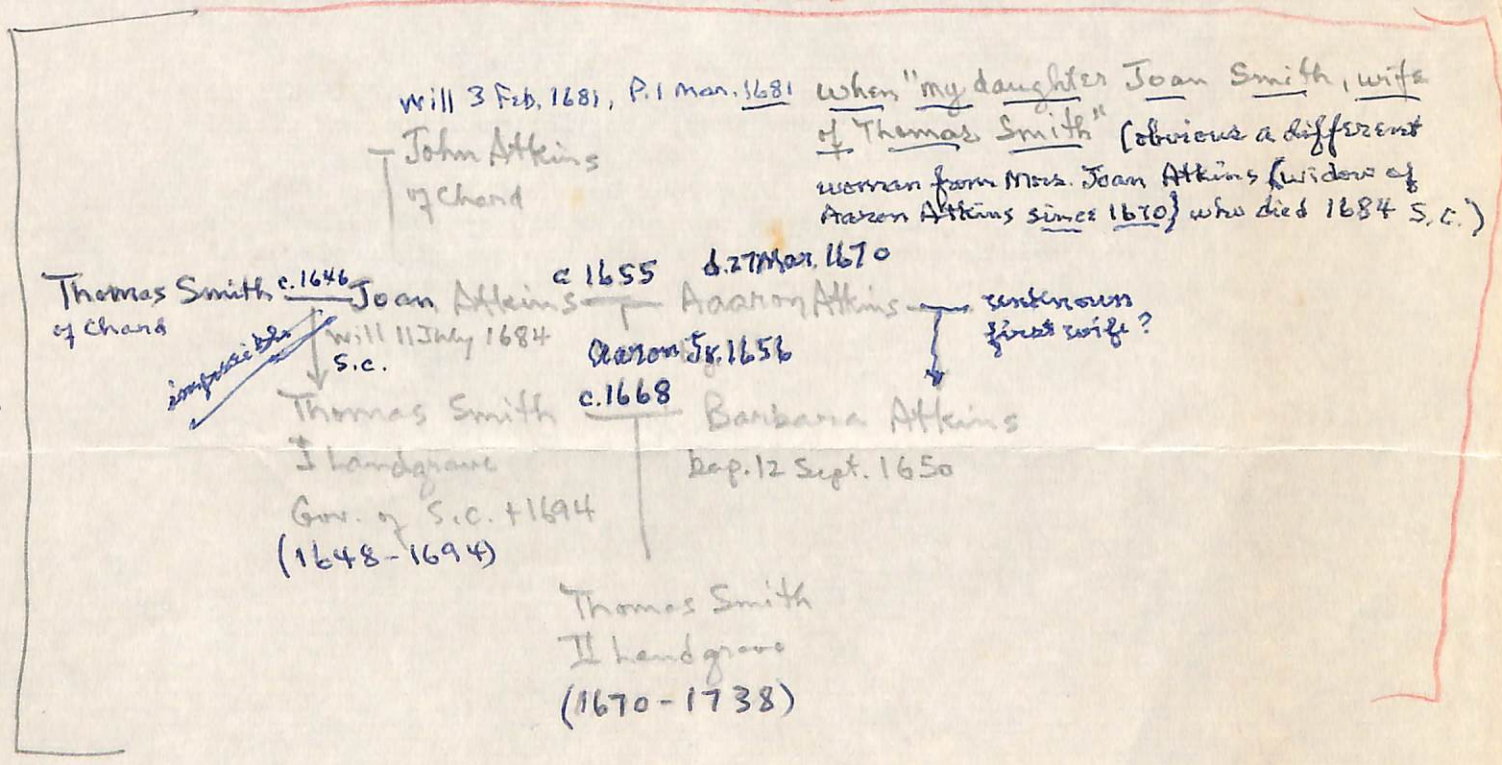 will 3 Feb. 1681, P. 1 Mar. 1681 when "my daughter Joan Smith, wife
of Thomas Smith" (obvious a different
woman from Mrs. Joan Atkins (widow of
Aaron Atkins since 1670) who died 1684 S.C.)
John Atkins
of Chard
Thomas Smith c.1646 Joan Atkins c 1655 Aaaron Atkins d. 27 Mar. 1670
of Chard
unknown
first wife?
impossible
will 11 July 1684
S.C.
Aaron Jr. 1656
Thomas Smith c.1668 Barbara Atkins
I Landgrave
bap. 12 Sept. 1650
Gov. of S.C. +1694
(1648-1694)
Thomas Smith
II Landgrave
(1670-1738)